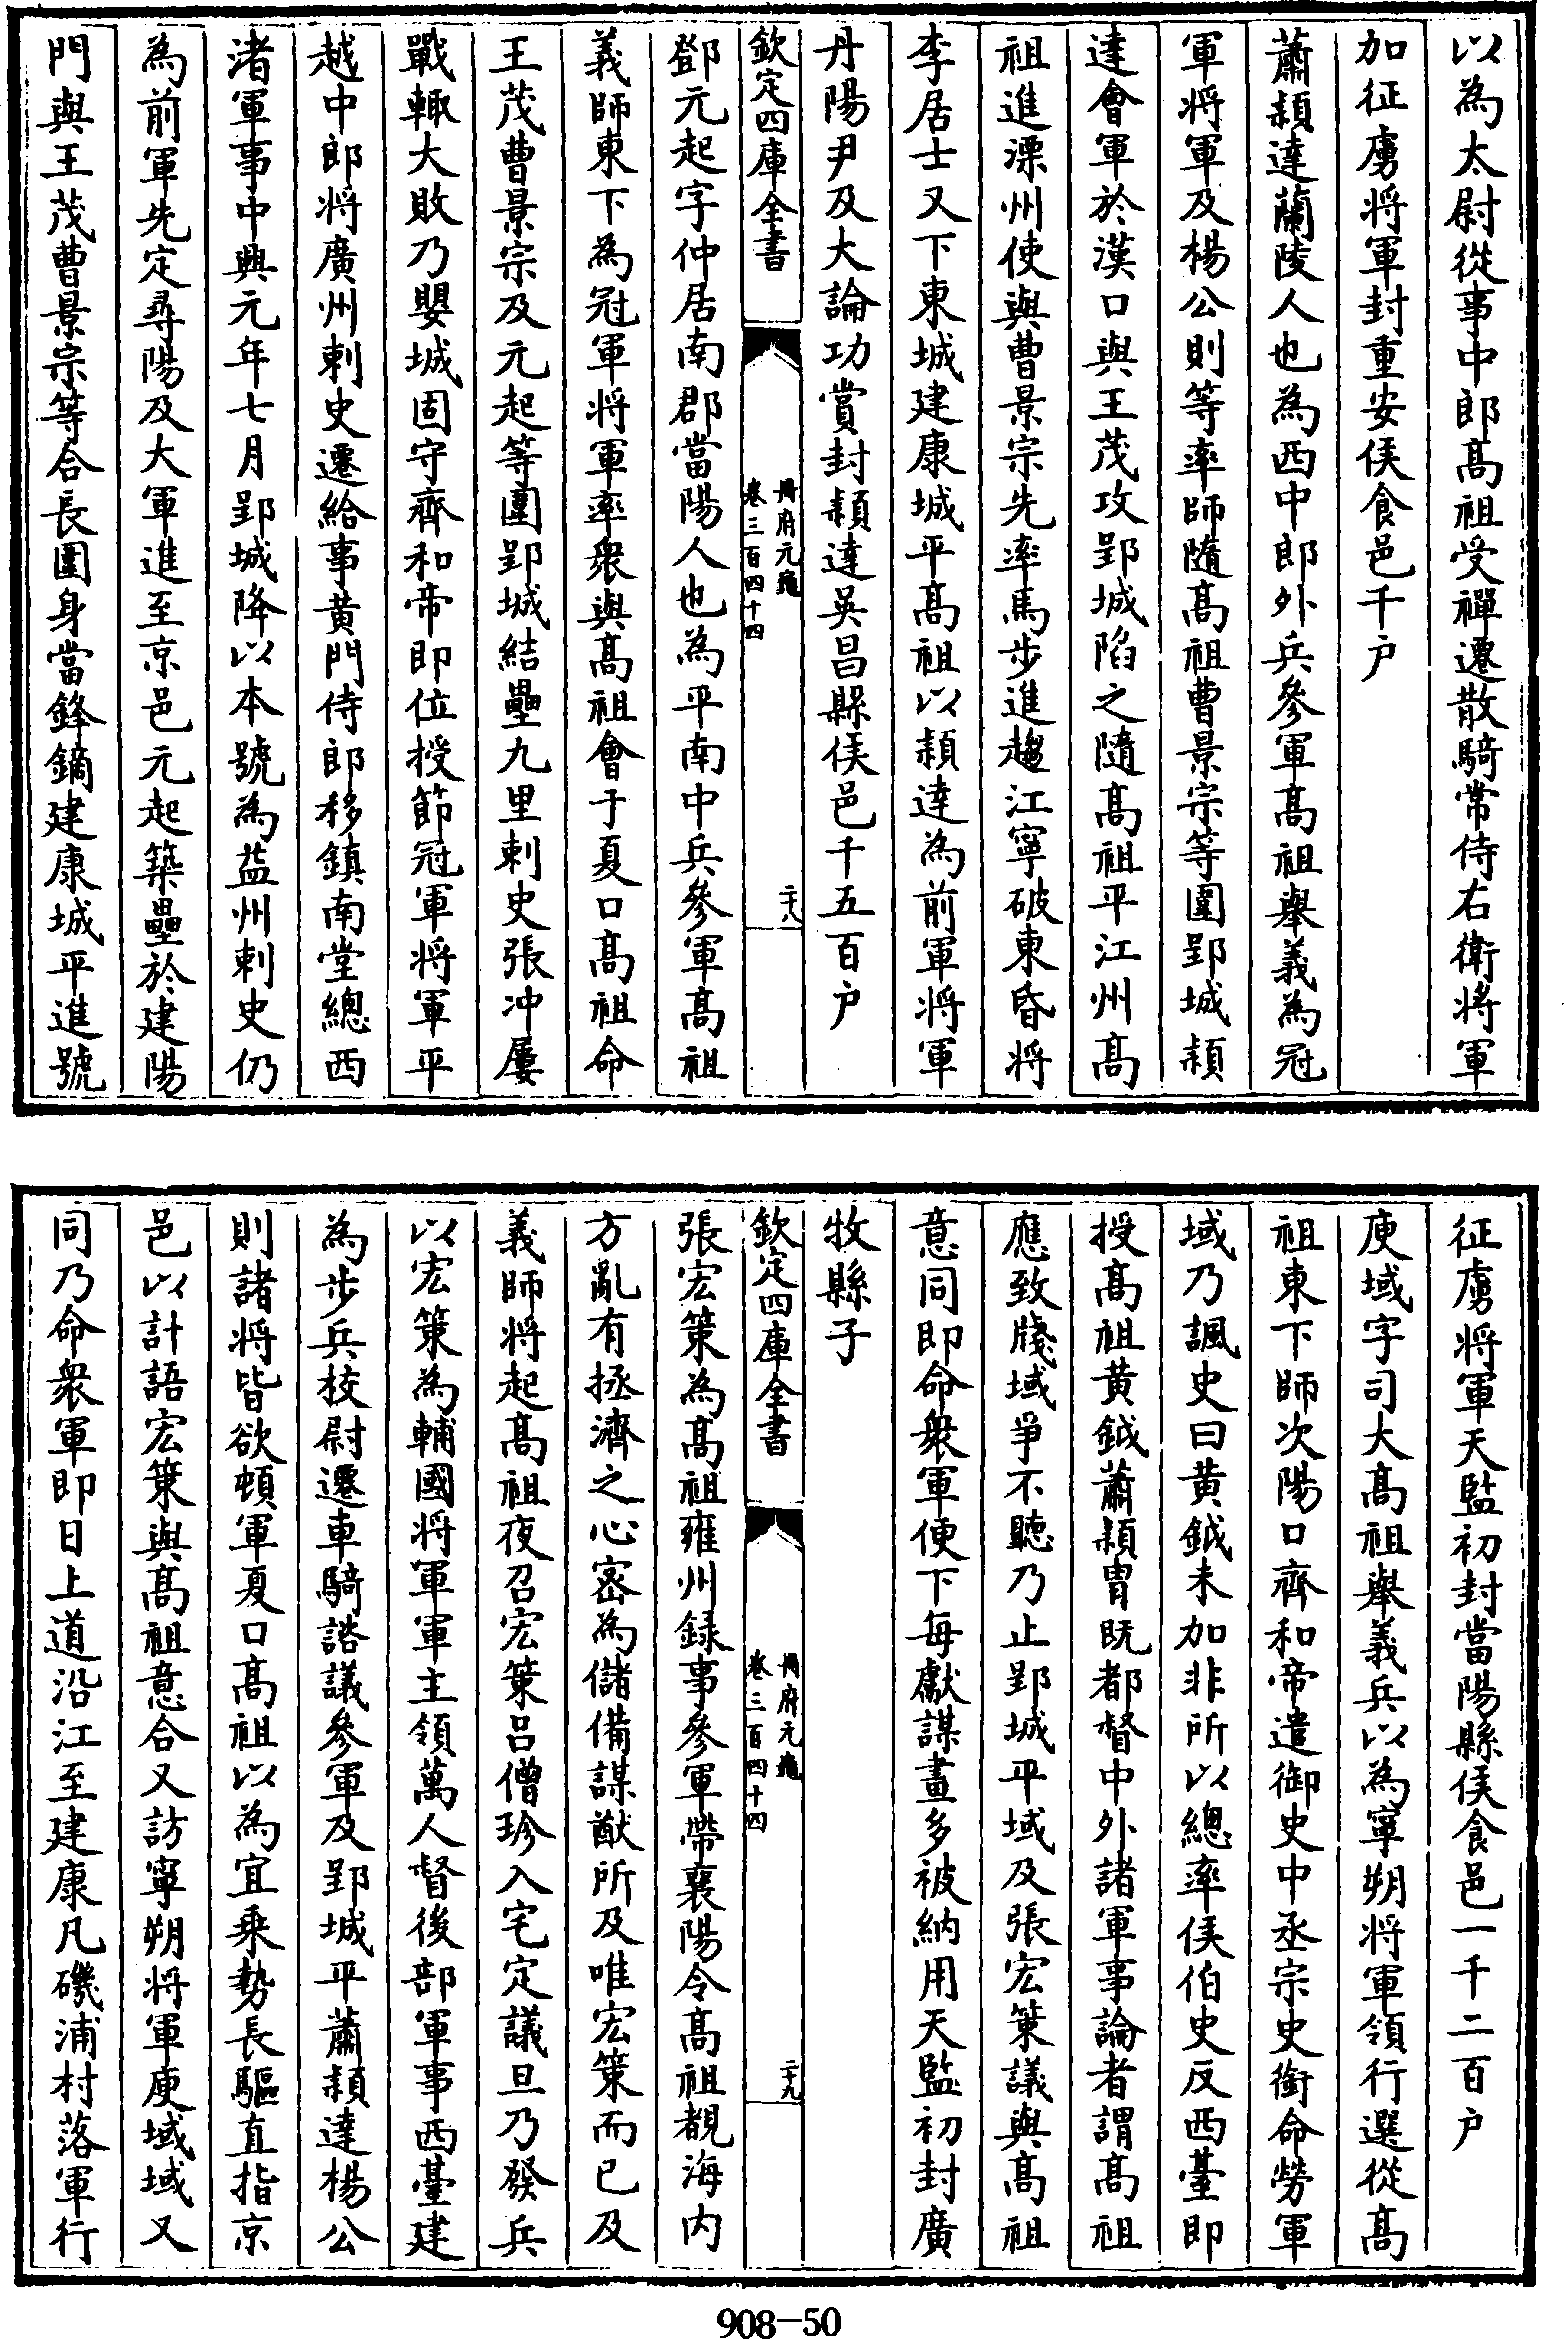 以為太尉從事中郎髙祖受禪遷散騎常侍右衛將軍
加征虜將軍封重安侯食邑千户
蕭穎達蘭陵人也為西中郎外兵參軍髙祖舉義為冠
軍將軍及楊公則等率師隨髙祖曹景宗等圍郢城穎
達會軍於漢口與王茂攻郢城陷之隨髙祖平江州髙
祖進漂州使與曹景宗先率馬步進趨江寧破東昏將
李居士又下東城建康城平髙祖以穎達為前軍將軍
丹陽尹及大論功賞封穎達吳昌縣侯邑千五百户
欽定四庫全書
冊府元龜
卷三百四十四
二十八
鄧元起字仲居南郡當陽人也為平南中兵參軍髙祖
義師東下為冠軍將軍率衆與髙祖會于夏口髙祖命
王茂曹景宗及元起等圍郢城結壘九里刺史張冲屢
戰輙大敗乃嬰城固守齊和帝即位授節冠軍將軍平
越中郎將廣州刺史遷給事黄門侍郎移鎮南堂總西
渚軍事中興元年七月郢城降以本號為益州刺史仍
為前軍先定尋陽及大軍進至京邑元起築壘於建陽
門與王茂曹景宗等合長圍身當鋒鏑建康城平進號
征虜將軍天監初封當陽縣侯食邑一千二百户
庾域字司大髙祖舉義兵以為寧朔將軍領行選從髙
祖東下師次陽口齊和帝遣御史中丞宗史銜命勞軍
域乃諷史曰黄鉞未加非所以總率侯伯史反西臺即
授髙祖黄鉞蕭穎胄既都督中外諸軍事論者謂髙祖
應致牋域爭不聽乃止郢城平域及張宏策議與髙祖
意同即命衆軍便下每獻謀畫多被納用天監初封廣
牧縣子
欽定四庫全書
冊府元龜
卷三百四十四
二十九
張宏策為髙祖雍州録事參軍帶襄陽令髙祖覩海内
方亂有拯濟之心宻為儲備謀猷所及唯宏策而已及
義師將起髙祖夜召宏策吕僧珍入宅定議旦乃發兵
以宏策為輔國將軍軍主領萬人督後部軍事西臺建
為步兵校尉遷車騎諮議參軍及郢城平蕭穎達楊公
則諸將皆欲頓軍夏口髙祖以為宜乗勢長驅直指京
邑以計語宏策與髙祖意合又訪寧朔將軍庾域域又
同乃命衆軍即日上道沿江至建康凡磯浦村落軍行
908-50